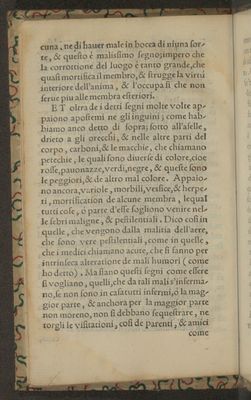 cuna, ne di hauer male in bocca di niuna sor-
te, & questo è malissimo segno; impero che
la corrottione del luogo è tanto grande, che
quasi mortifica il membro, & strugge la virtù
interiore dell'anima, & l'occupa sì che non
serue piu alle membra esteriori.
ET oltra de i detti segni molte volte ap-
paiono apostemi ne gli inguini; come hab-
biamo anco detto di sopra; sotto all'asele,
drieto a gli orecchi, & nelle altre parti del
corpo, carboni, & le macchie, che chiamano
petechie, le quali sono diuerse di colore, cioe
rosse, pauonazze, verdi, negre, & queste sono
le peggiori, & de altro mal colore. Appaio-
no ancora, variole, morbili, vesice, & herpe-
ti, mortification de alcune membra, le qual
tutti cose, o parte d'esse sogliono venire nel-
le febri maligne, & pestilentiali. Dico cosi in
quelle, che vengono dalla malitia dell'arte,
che sono vere pestilentiali, come in quelle,
che i medici chiamano acute, che si fanno per
intrinseca alteratione de mali humori (come
ho detto). Ma siano questi segni come essere
si vogliano, quelli, che da tali mali s'inferma-
no, se non sono in casa tutti infermi, ò la mag-
gior parte, & anchora per la maggior parte
non moreno, non si debbano sequestrare, ne
torgli le visitationi, così de parenti, & amici
come